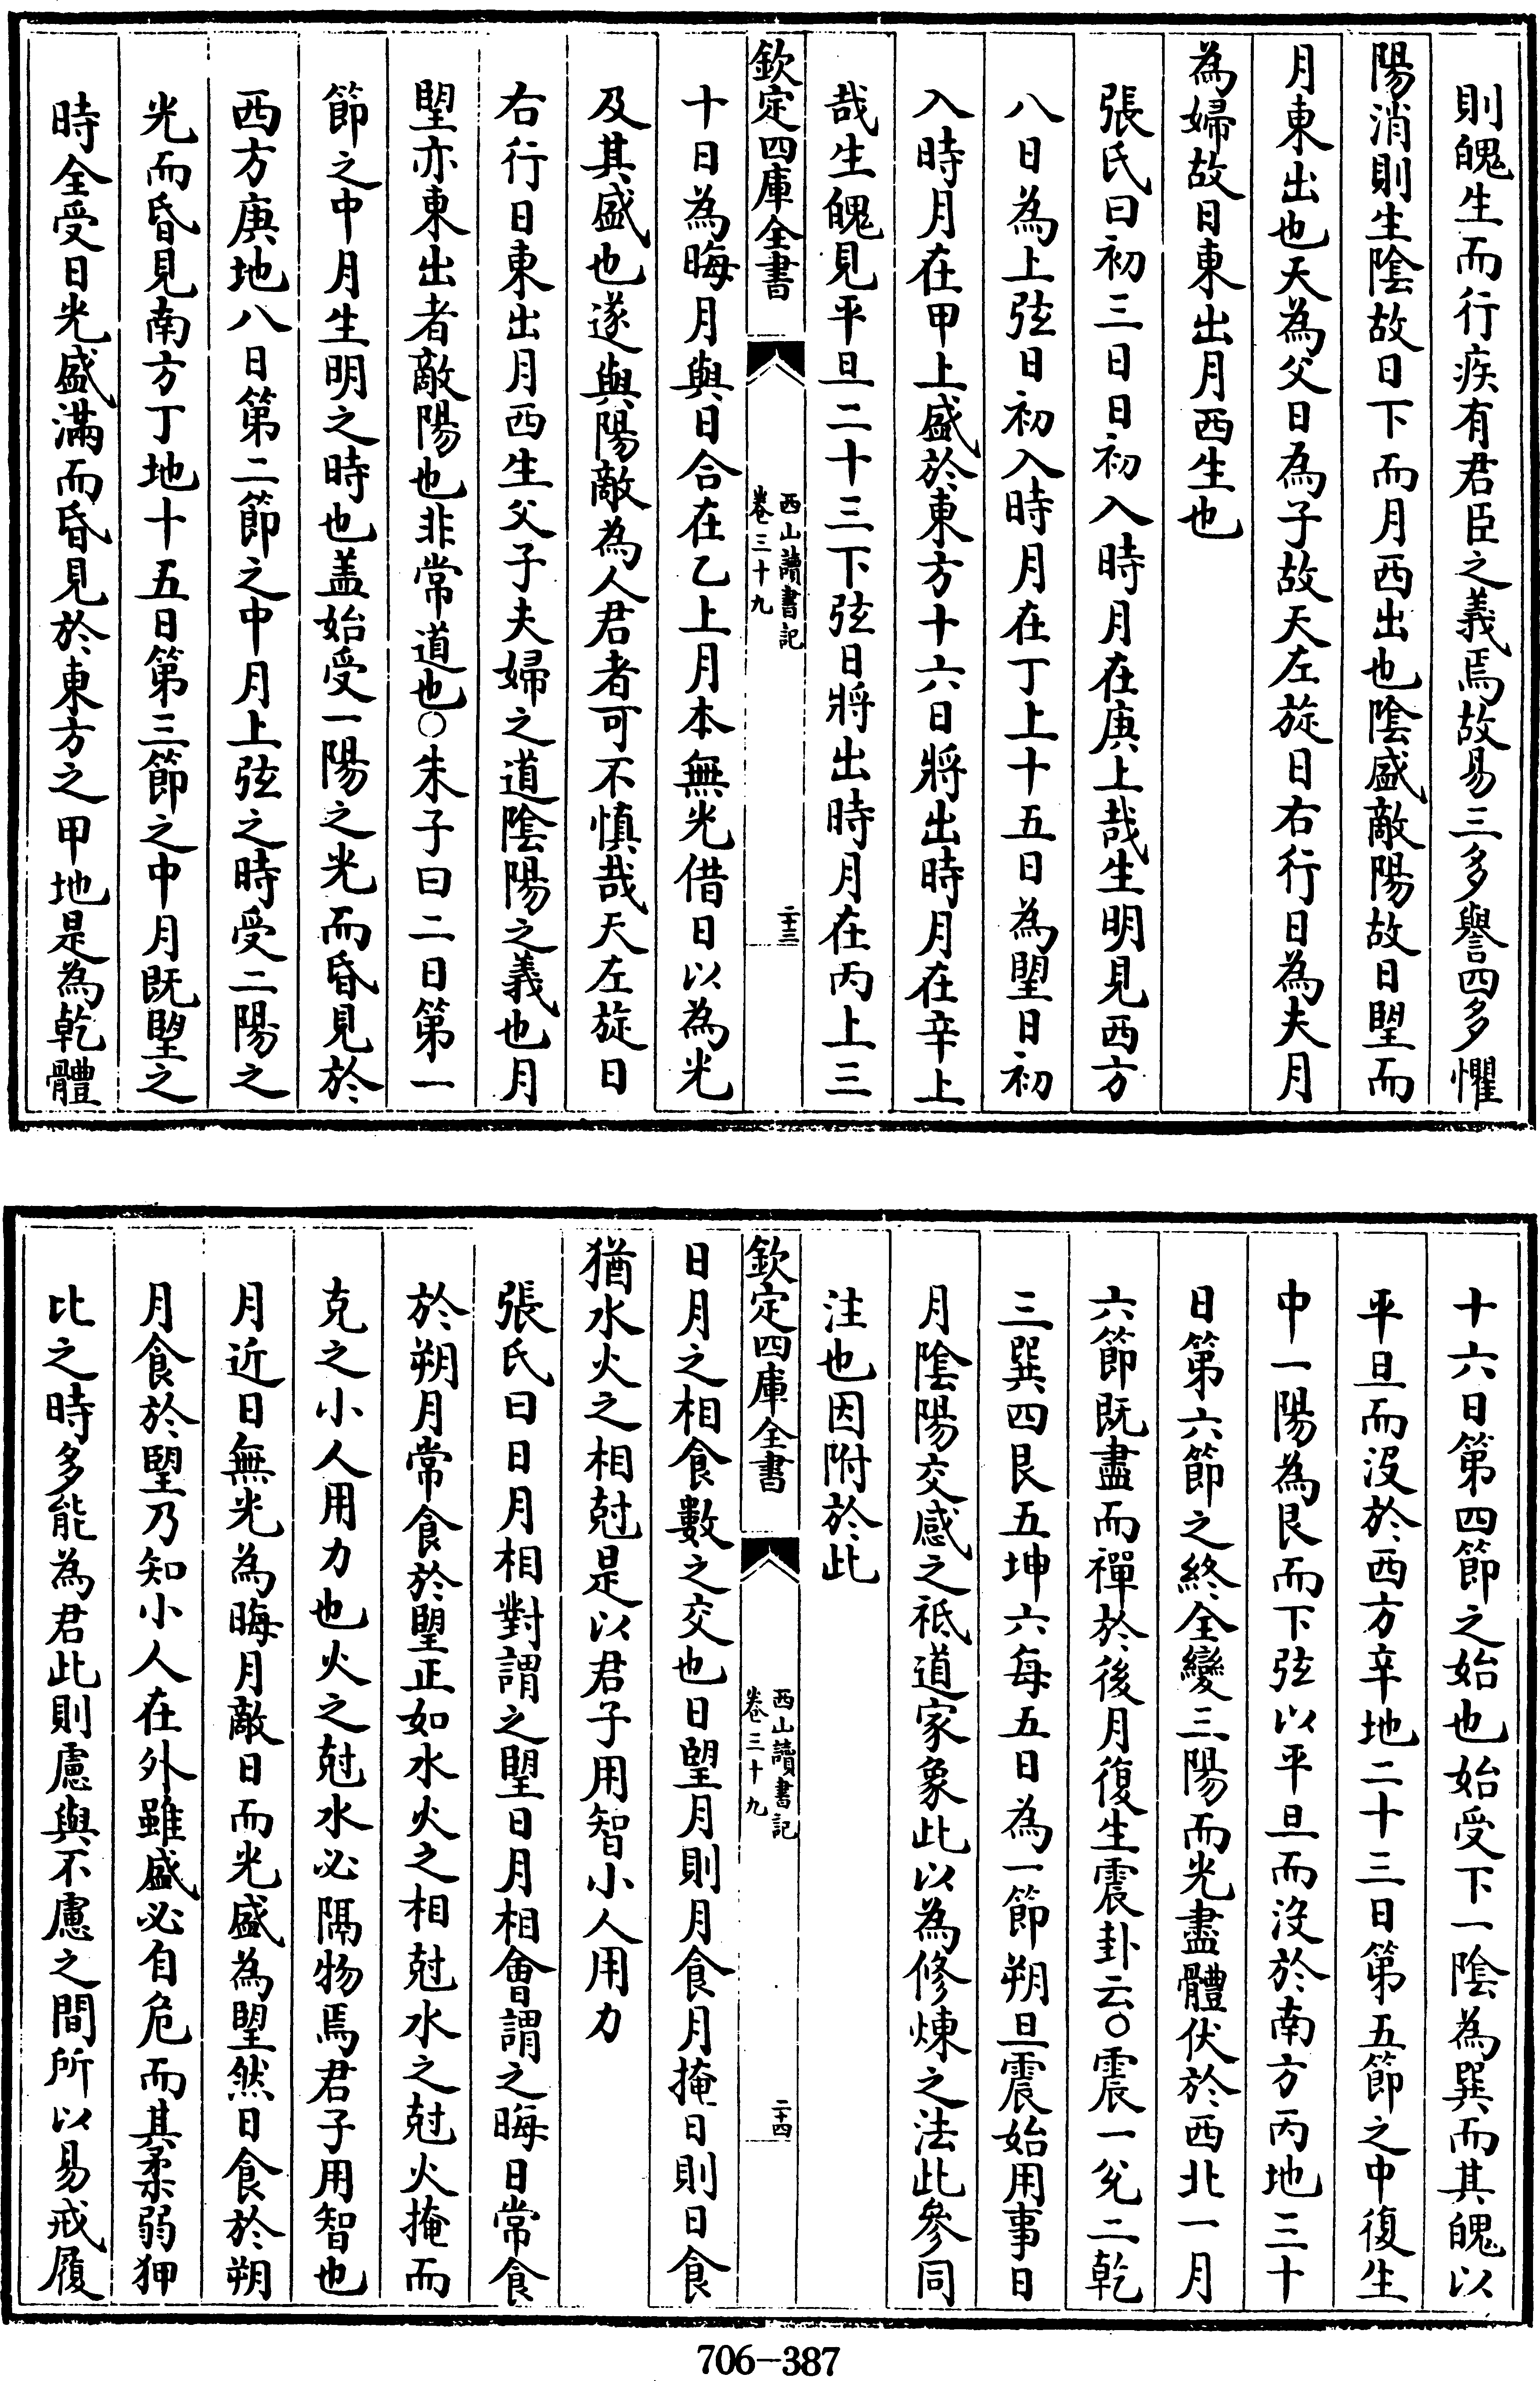 則魄生而行疾有君臣之義焉故易三多譽四多懼
陽消則生陰故日下而月西出也陰盛敵陽故日朢而
月東出也天為父日為子故天左旋日右行日為夫月
為婦故日東出月西生也
張氏曰初三日日初入時月在庚上哉生明見西方
八日為上弦日初入時月在丁上十五日為朢日初
入時月在甲上盛於東方十六日將出時月在辛上
哉生魄見平旦二十三下弦日將出時月在丙上三
欽定四庫全書
西山讀書記
卷三十九
二十三
十日為晦月與日合在乙上月本無光借日以為光
及其盛也遂與陽敵為人君者可不慎哉天左旋日
右行日東出月西生父子夫婦之道陰陽之義也月
朢亦東出者敵陽也非常道也○朱子曰二日第一
節之中月生明之時也盖始受一陽之光而昏見於
西方庚地八日第二節之中月上弦之時受二陽之
光而昏見南方丁地十五日第三節之中月既朢之
時全受日光盛滿而昏見於東方之甲地是為乾體
十六日第四節之始也始受下一陰為巽而其魄以
平旦而沒於西方辛地二十三日第五節之中復生
中一陽為艮而下弦以平旦而沒於南方丙地三十
日第六節之終全變三陽而光盡體伏於西北一月
六節既盡而禪於後月復生震卦云○震一兌二乾
三巽四艮五坤六每五日為一節朔旦震始用事日
月陰陽交感之衹道家象此以為修煉之法此參同
注也因附於此
欽定四庫全書
西山讀書記
卷三十九
二十四
日月之相食數之交也日望月則月食月掩日則日食
猶水火之相尅是以君子用智小人用力
張氏曰日月相對謂之朢日月相會謂之晦日常食
於朔月常食於朢正如水火之相尅水之尅火掩而
克之小人用力也火之尅水必隔物焉君子用智也
月近日無光為晦月敵日而光盛為朢然日食於朔
月食於朢乃知小人在外雖盛必自危而其柔弱狎
比之時多能為君此則慮與不慮之間所以易戒履
706-387